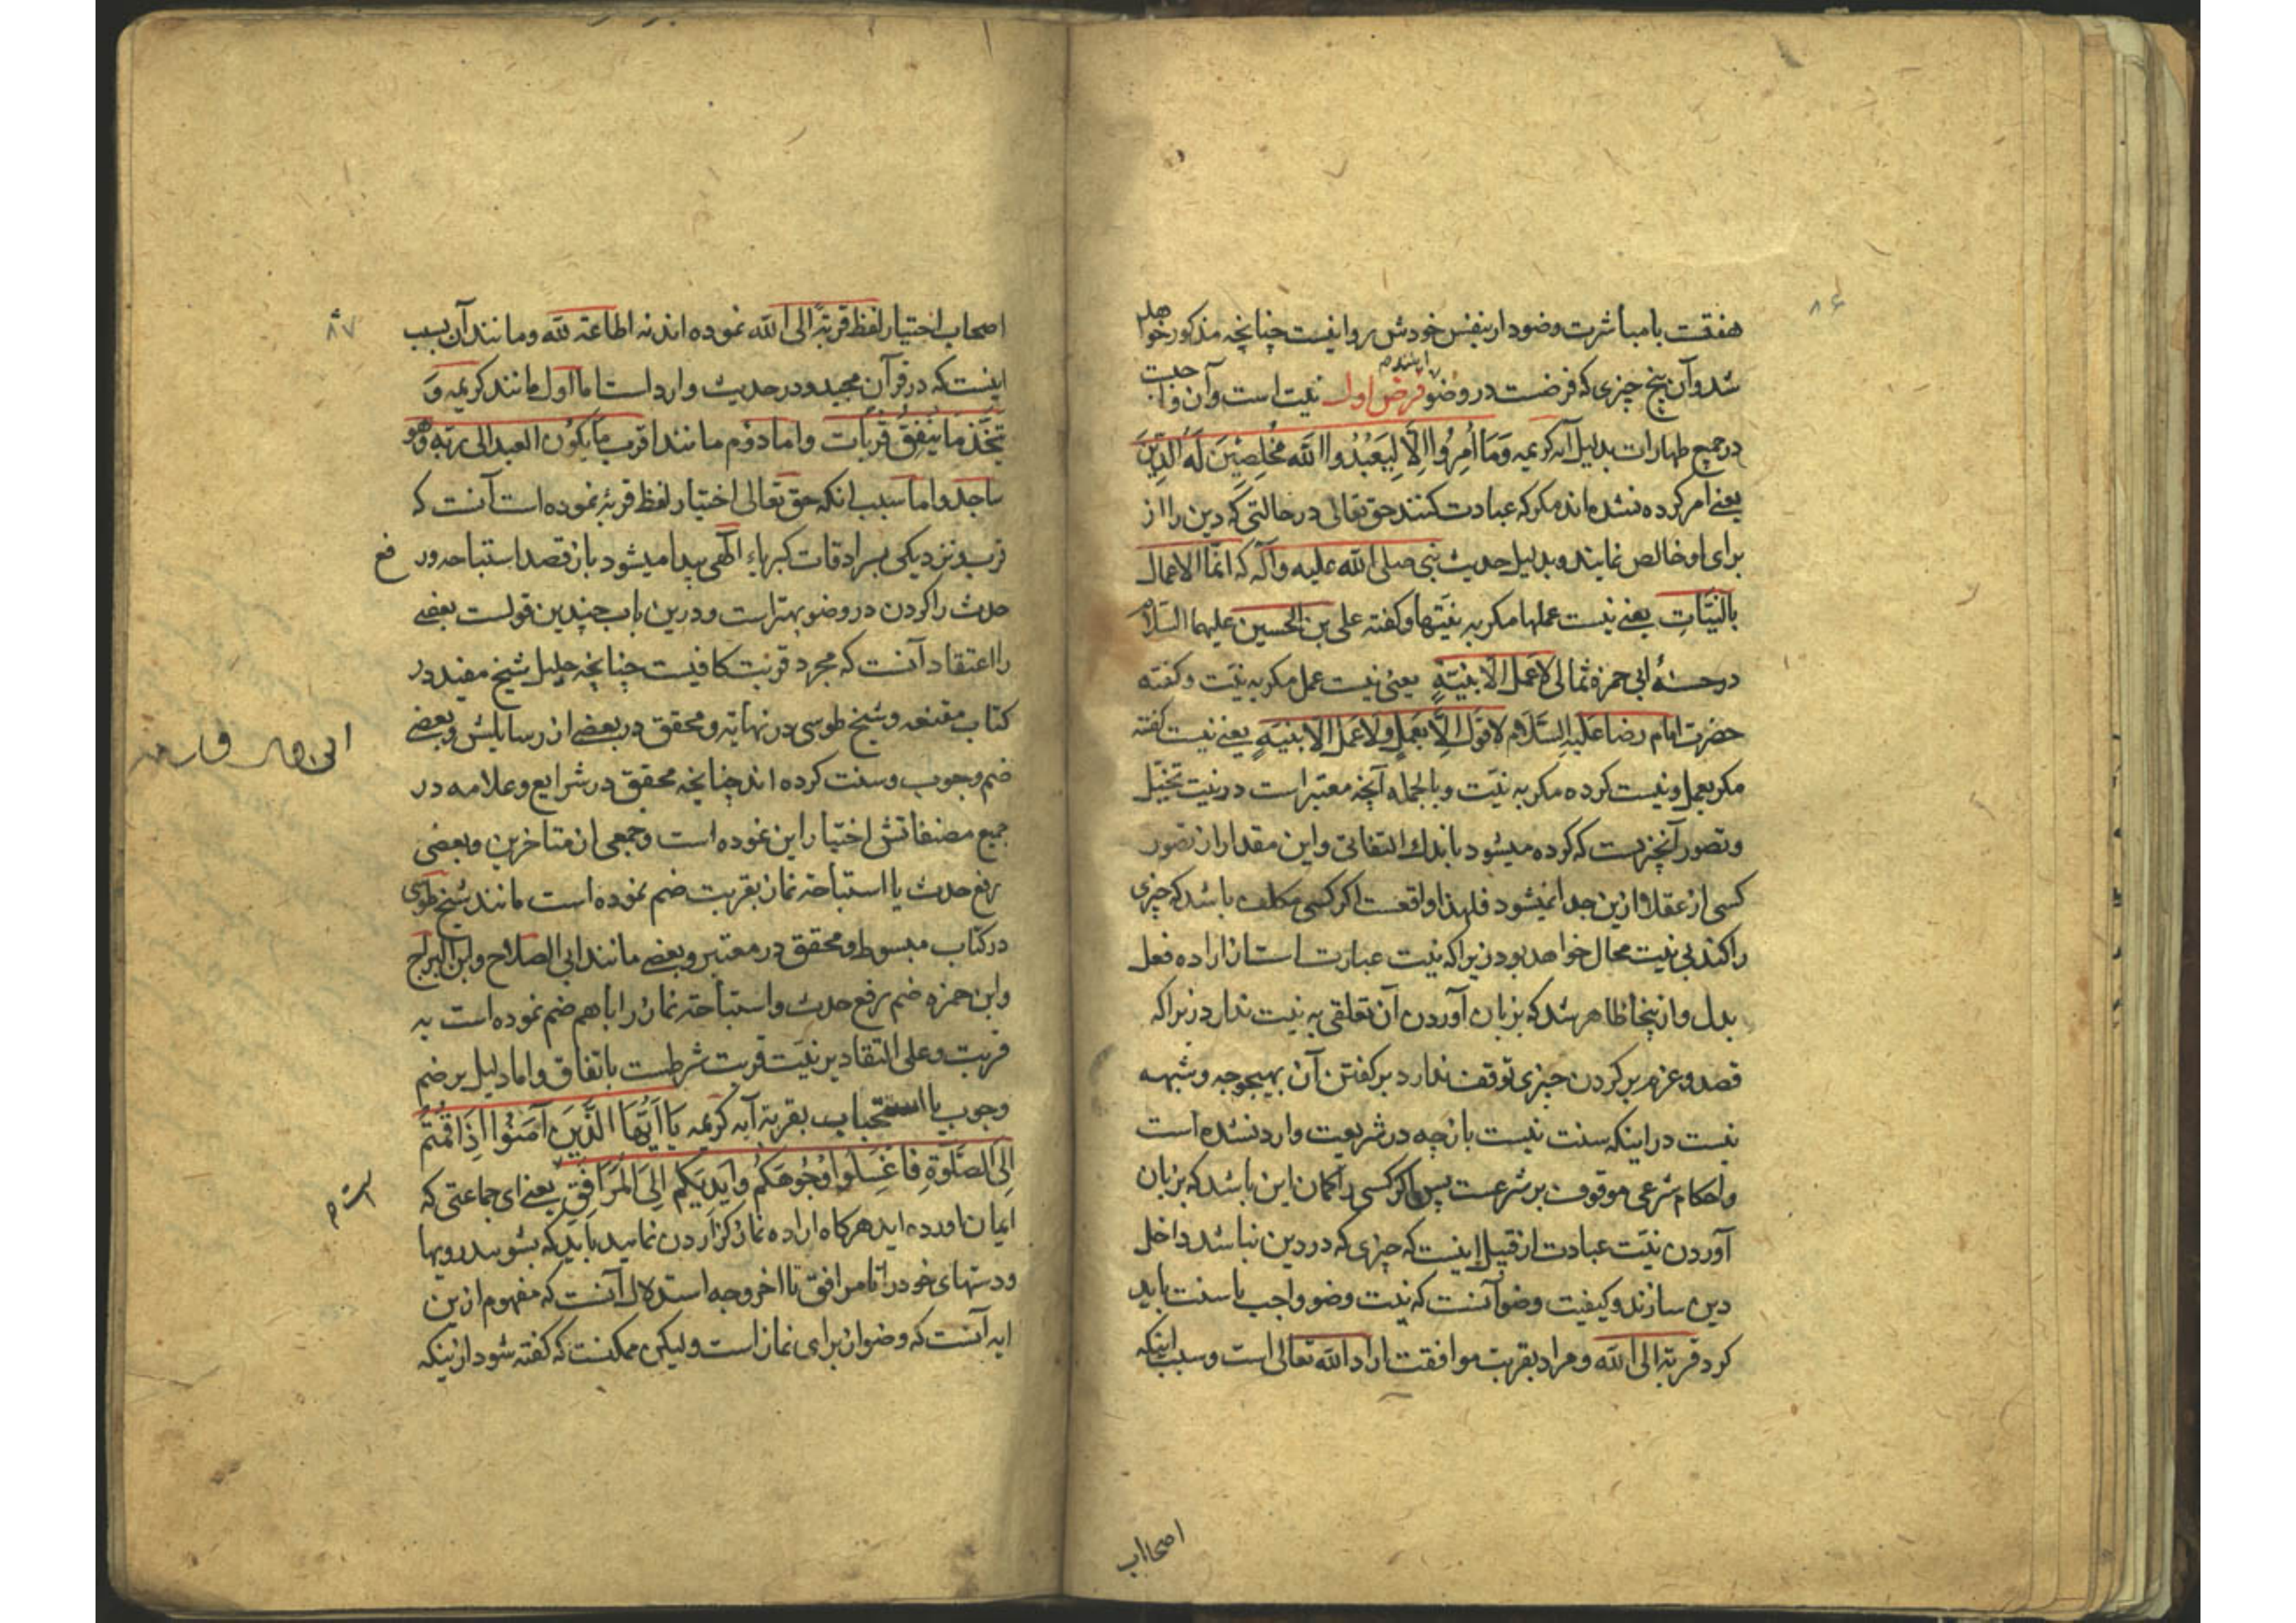 ۸۶
هفتست بامباشرت وضودار بنفس خودش روا نیست چنانچه مذکور خواهد
شد وآن پنج چیزی که فرضست در وضو فرض اول نیت است وآن واجبست
درجمیع طهارات بدلیل آیه کریمه وَمَا اُمِرُوا اِلَّا لِیَعْبُدُوا اللّٰهَ مُخْلِصِیْنَ لَهُ الدِّیْنَ
یعنے امر کرده نشده اند مکر که عبادت کنند حق تعالی در حالتی که دین را از
برای او خالص نمایند وبدلیل حدیث نبی صلی الله علیه وآله که انّما الاعمال
بالنیّاتِ یعنے نیست عملها مکر به نیّتها وکفته علی بن الحسین علیهما السّلام
در حسنهٔ ابی حمزه ثمالی لاعمل الّا بنیّةٍ یعنی نیست عمل مکر به نیّت وکفته
حضرت امام رضا علیه السَّلام لا قول الّا بعملٍ ولا عمل الا بنیةٍ یعنے نیست کفته
مکر بعمل ونیست کرده مکر به نیّت وبالجمله آنچه معتبر است در نیت تخیّل
وتصور آنچیزیست که کرده میشود باندك التفاتی واین مقدار از تصور
کسی از عقلا ازین جدا نمیشود فلهذا واقعست اکر کسی مکلف باشد که چیزی
را کند بی نیت محال خواهد بود زیرا که نیت عبارت است از اراده فعل
بدل وازینجا ظاهر شد که بزبان آوردن آن تعلقی به نیت ندارد زیرا که
قصد وعزم بر کردن چیزی توقف ندارد بر کفتن آن بهیچوجه وشبهه
نیست در اینکه سنت نیست بازچه در شریعت وارد نشده است
واحکام شرعی موقوف بر شرعست پس اکر کسی را کمان این باشد که بزبان
آوردن نیّت عبادت از قبیل اینست که چیزی که در دین نباشد داخل
دین سازند وکیفیت وضو آنست که نیت وضو واجب یا سنت باید
کرد قربة الی الله ومراد بقربت موافقت اراد الله تعالی است وسبب اینکه
اصحاب
۸۷
اصحاب اختیار لفظ قربةً الی الله نموده اند نه اطاعة لله ومانند آن بسبب
اینست که در قرآن مجید ودر حدیث وارد است اما اول مانند کریمه وَ
یتّخذ ما ینفق قربات واما دوم مانند اقرب ما یکون العبد الی ربّه وهو
ساجد واما سبب انکه حق تعالی اختیار لفظ قربة نموده است آنست که
قرب ونزدیکی بسرادقات کبریاء الهی پیدا میشود باز قصد استباحه ور فع
حدث را کردن در وضو بهتر است ودرین باب چندین قولست بعضے
را اعتقاد آنست که مجرد قربت کافیست چنانچه جلیل شیخ مفید در
کتاب مقنعه وشیخ طوسی در نهایه ومحقق در بعضے از رسایلش وبعضے
ضم وجوب وسنت کرده اند چنانچه محقق در شرایع وعلامه در
جمیع مصنفاتش اختیار این نموده است وجمعی از متاخرین وبعضی
رفع حدث یا استباحة نماز بقربت ضم نموده است مانند شیخ طوسی
در کتاب مبسوط ومحقق در معتبر وبعضے مانند ابی الصلاح وابن البراج
وابن حمزه ضم رفع حدث واستباحة نماز را باهم ضم نموده است به
قربت وعلی التقادیر نیّت قربت شرطست باتفاق واما دلیل بر ضم
وجوب یا استحباب بقربة آیه کریمه یَا اَیُّهَا الَّذِیْنَ آمَنُوْا اِذَا قُمْتُمْ
اِلَی الصَّلٰوةِ فَاغْسِلُوا وُجُوهَکُمْ وَاَیْدِیَکُمْ اِلَی الْمَرَافِقِ یعنے ای جماعتی که
ایمان اورده اید هرکاه اراده نماز کزاردن نمایید باید که بشویید رویها
ودستهای خود را تا مرافق تا اخر وجه استدلال آنست که مفهوم ازین
ایه آنست که وضو از برای نماز است ولیکن ممکنست که کفته شود ازینکه